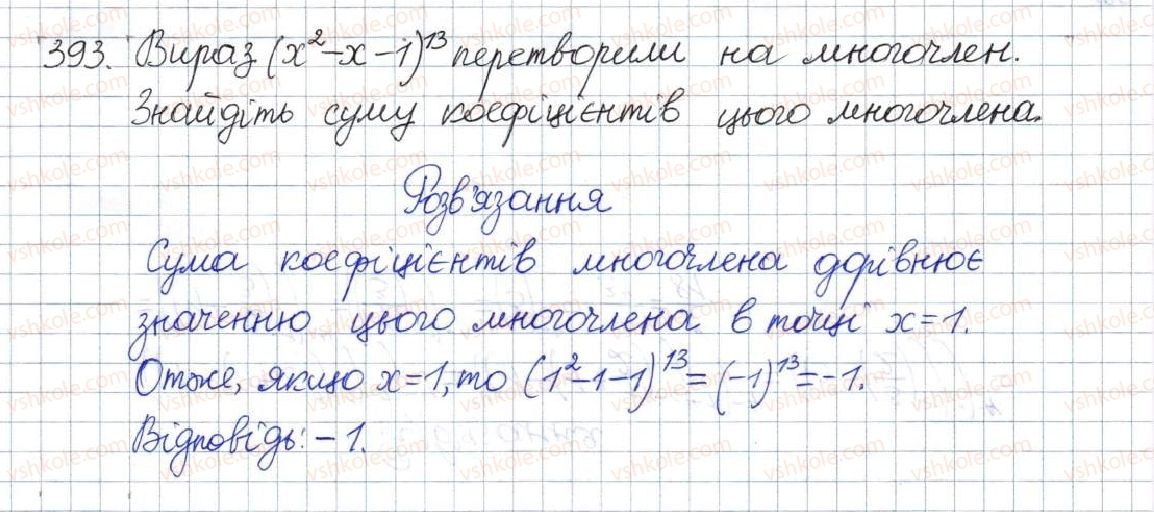 393. Вираз (x²-x-1)¹³ перетворили на многочлен.
Знайдіть суму коефіцієнтів цього многочлена.
Розв'язання
Сума коефіцієнтів многочлена дорівнює
значенню цього многочлена в точці x=1.
Отже, якщо x=1, то (1²-1-1)¹³=(-1)¹³=-1.
Відповідь: -1.